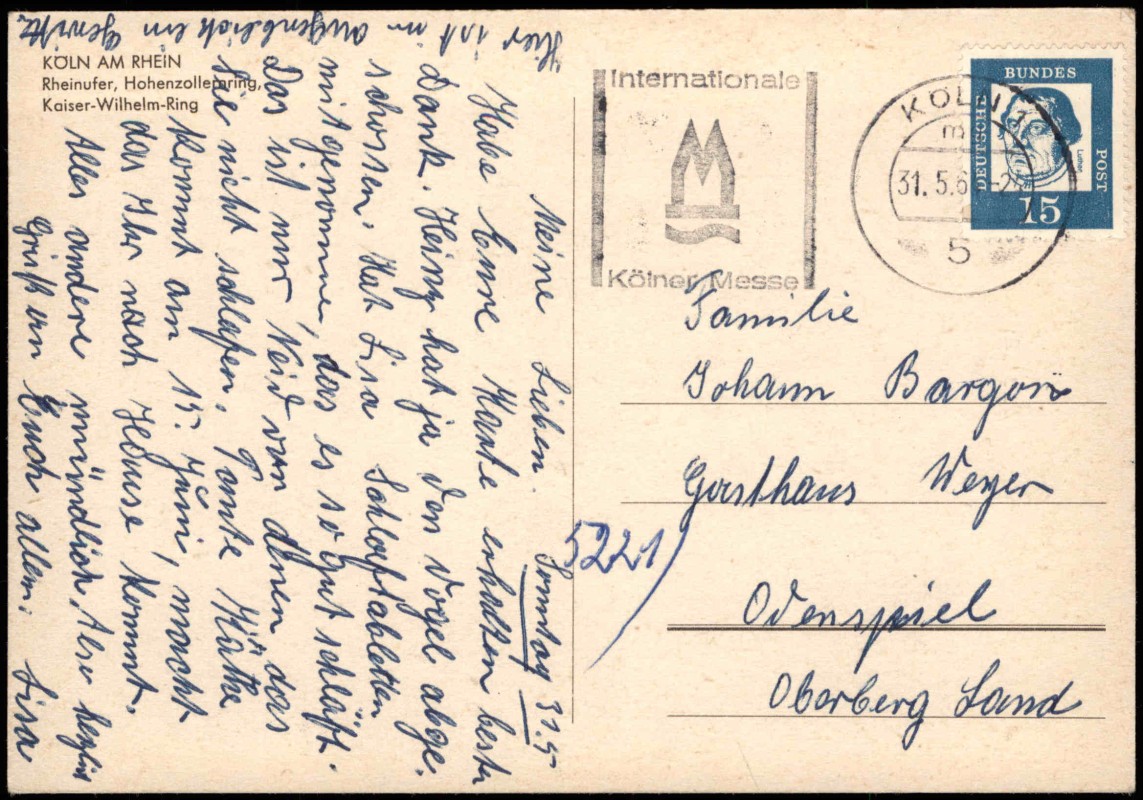 KÖLN AM RHEIN
Rheinufer, Hohenzollernring,
Kaiser-Wilhelm-Ring
Meine Lieben. Sonntag 31.5
Habe Eure Karte erhalten besten
Dank. Heinz hat ja den Vogel abge-
schossen. Hat Lisa Schlaftabletten
mitgenommen, das es so gut schläft.
Das ist nur Neid von Ihnen, das
Sie nicht schlafen. Tante Käthe
kommt am 15. Juni, macht
das Ihr nach Hause kommt.
Alles andere mündlich. Also herzlich
Grüß von Euch allem. Lisa
Hier ist im augenblick ein Gewitter
Internationale
Kölner Messe
KÖLN
31.5.6
5
DEUTSCHE
BUNDES
POST
Luther
15
Familie
Johann Bargon
Gasthaus Weyer
5221)
Odenspiel
Oberberg Land